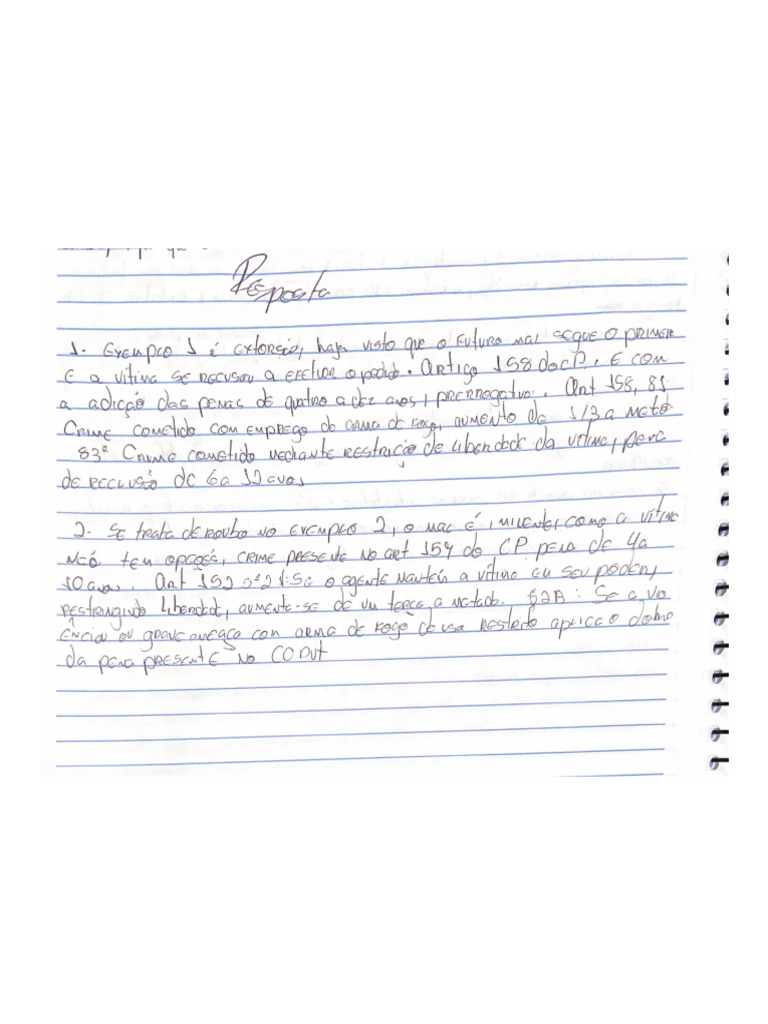 Resposta
1. Exemplo 1 é extorsão, haja visto que o futuro mal segue o primeir
E a vítima se recusou a efetuar o pedido. Artigo 158 do CP. E com
a adicção das penas de quatro a dez anos, prerrogativa:. Art 158, §1
Crime cometido com emprego de arma de fogo, aumento de 1/3 a metade
§3º Crime cometido mediante restrição de liberdade da vítima, pena
de recclusão de 6 a 12 anos,
2. Se trata de roubo no exemplo 2, o mal é iminente, como a vítima
não tem opções, crime presente no art 157 do CP pena de 4 a
10 anos. Art 152 : Se o agente mantém a vítima em seu poder,
restringindo liberdade, aumenta-se de um terço a metade. §2B : Se a vio
ência ou grave ameaça com arma de fogo de uso restrito aplica o dobro
da pena presente no